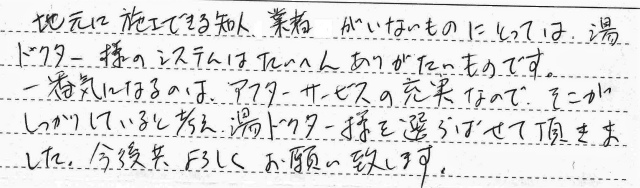 地元に施工できる知人、業者がいないものにとっては、湯
ドクター様のシステムはたいへんありがたいものです。
一番気になるのは、アフターサービスの充実なので、そこが
しっかりしていると考え、湯ドクター様を選ばせて頂きま
した。今後共よろしくお願い致します。